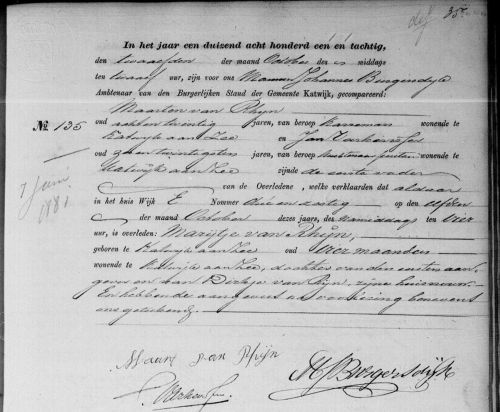 35
In het jaar een duizend acht honderd een en tachtig,
den twaalfden der maand October des middags
ten twaalf uur, zijn voor ons Johannes
Ambtenaar van den Burgerlijken Stand der Gemeente Katwijk, gecompareerd:
Maarten van Rhijn
oud achtentwintig jaren, van beroep wonende te
Katwijk aan Zee en Jan
oud jaren, van beroep wonende te
Katwijk aan Zee zijnde de eerste vader
van de Overledene, welke verklaarden dat aldaar
in het huis Wijk E Nommer drie en zestig op den elfden
der maand October dezes jaars, des namiddags ten vier
uur, is overleden: Marijtje van Rhijn,
geboren te Katwijk aan Zee oud vier maanden
wonende te Katwijk aan Zee, dochter van den eersten aan-
gever en van Dirkje van Rijn, zijne huisvrouw.
En hebben de aangevers na voorlezing benevens
ons geteekend.
№ 135
7 Juni
1881
Maart van Rhijn